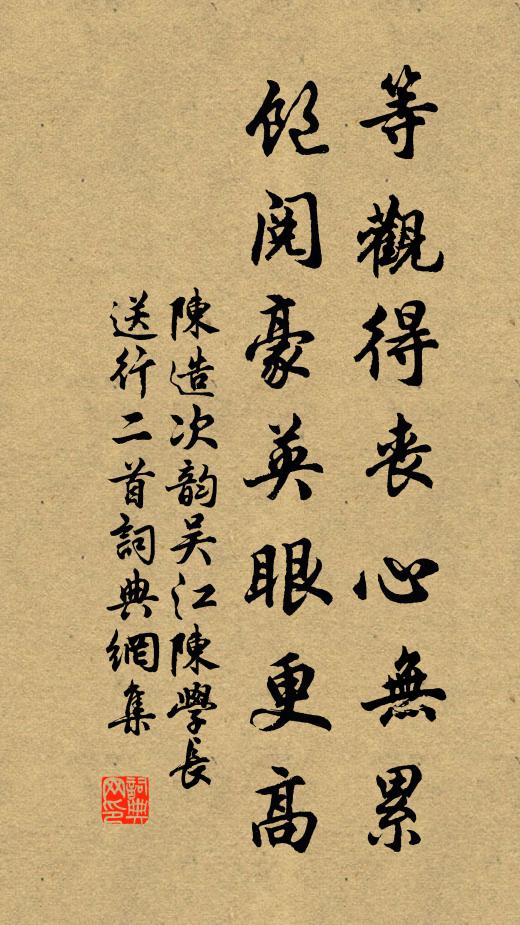 等觀得喪心無累
飽閱豪英眼更高
陳造次韵吳江陳學長
送行二首詞典網集
詞典
网印